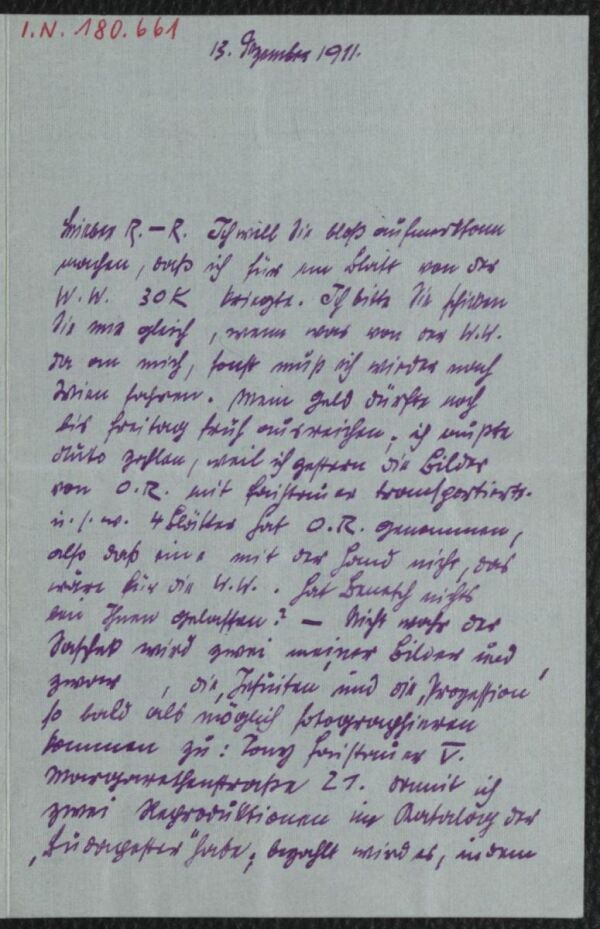 I.N. 180.661
13. Dezember 1911.
Lieber R.–R. Ich will Sie bloß aufmerksam
machen, daß ich für ein Blatt von der
W.W. 30 K kriegte. Ich bitte Sie schicken
Sie mir gleich, wenn was von der W.W.
da an mich, sonst muß ich wieder nach
Wien fahren. Mein Geld dürfte noch
bis Freitag früh ausreichen; ich mußte
Auto zahlen, weil ich gestern die Bilder
von O.R. mit Faistauer transportierte.
u.s.w. 4 Blätter hat O.R. genommen,
also daß eine mit der Hand nicht, das
wäre für die W.W.. Hat Benesch nichts
bei Ihnen gelassen? — Nicht wahr der
wird zwei meiner Bilder und
zwar, die „Jesuiten“ und die „Prozession“
so bald als möglich fotographieren
kommen zu: Tony Faistauer V.
Margarethenstraße 21. damit ich
zwei Reproduktionen im Katalog der
„Budapester“ habe; bezahlt wird es, indem